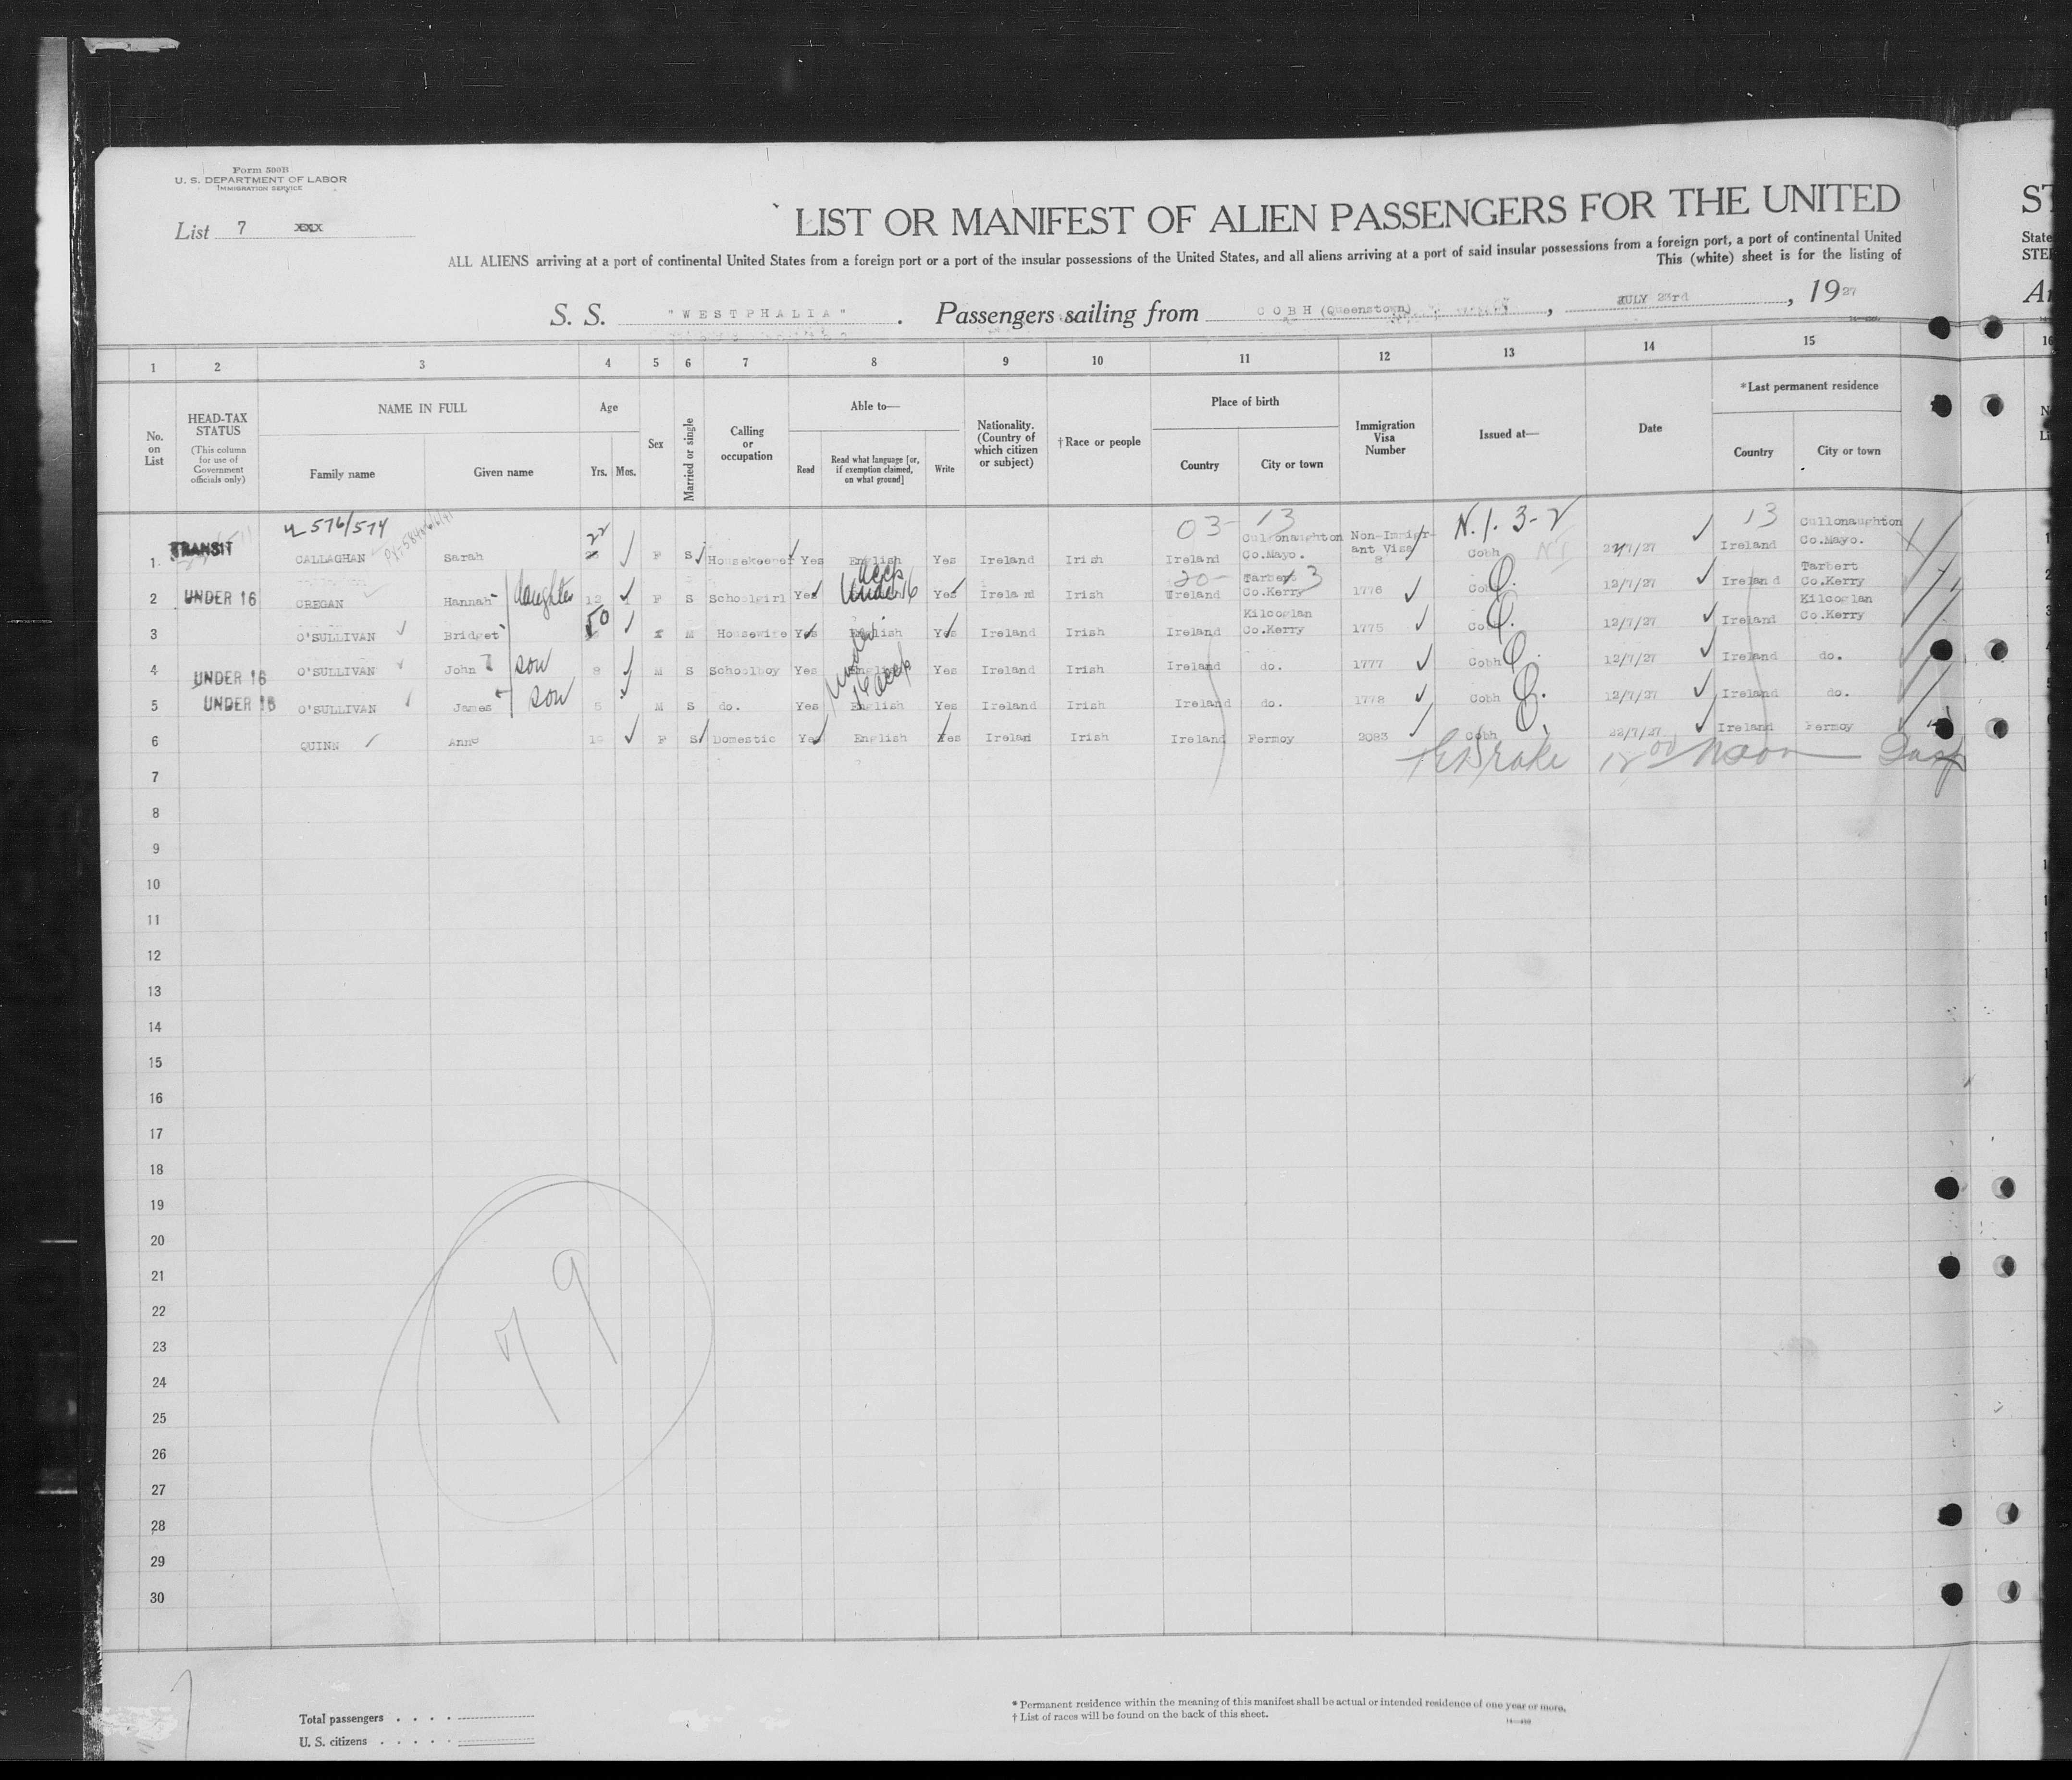 Form 500B
U. S. DEPARTMENT OF LABOR
IMMIGRATION SERVICE
List 7 xxx
LIST OR MANIFEST OF ALIEN PASSENGERS FOR THE UNITED
ST
ALL ALIENS arriving at a port of continental United States from a foreign port or a port of the insular possessions of the United States, and all aliens arriving at a port of said insular possessions from a foreign port, a port of continental United
State
This (white) sheet is for the listing of
S. S. "WESTPHALIA" . Passengers sailing from COBH (Queenstown) , JULY 23rd , 1927
1 2 3 4 5 6 7 8 9 10 11 12 13 14 15 16
No. on List
HEAD-TAX STATUS
(This column for use of Government officials only)
NAME IN FULL
Family name
Given name
Age
Yrs. Mos.
Sex
Married or single
Calling or occupation
Able to—
Read
Read what language [or, if exemption claimed, on what ground]
Write
Nationality. (Country of which citizen or subject)
† Race or people
Place of birth
Country
City or town
Immigration Visa Number
Issued at—
Date
*Last permanent residence
Country
City or town
576/574
03- 13 N.I. 3-2 13
1 TRANSIT CALLAGHAN Sarah 22 F S Housekeeper Yes English Yes Ireland Irish Ireland Cullonaughton Co.Mayo. Non-Immigrant Visa 8 Cobh Ireland Cullonaughton Co.Mayo.
20- 13
2 UNDER 16 CREGAN Hannah daughter 12 F S Schoolgirl Yes under 16 Yes Ireland Irish Ireland Tarbert Co.Kerry 1776 Cobh 12/7/27 Ireland Tarbert Co.Kerry
3 O'SULLIVAN Bridget 50 M Housewife Yes English Yes Ireland Irish Ireland Kilcoglan Co.Kerry 1775 Cobh 12/7/27 Ireland Kilcoglan Co.Kerry
4 UNDER 16 O'SULLIVAN John son 8 M S Schoolboy Yes English under 16 Yes Ireland Irish Ireland do. 1777 Cobh 12/7/27 Ireland do.
5 UNDER 16 O'SULLIVAN James son 5 M S do. Yes English Yes Ireland Irish Ireland do. 1778 Cobh 12/7/27 Ireland do.
6 QUINN Anne F S Domestic Yes English Yes Ireland Irish Ireland Fermoy 2083 Cobh 22/7/27 Ireland Fermoy
7 Drake Noon
8
9
10
11
12
13
14
15
16
17
18
19
20
21
22
23
24
25
26
27
28
29
30
79
Total passengers . . . .
U. S. citizens . . . . .
* Permanent residence within the meaning of this manifest shall be actual or intended residence of one year or more.
† List of races will be found on the back of this sheet.